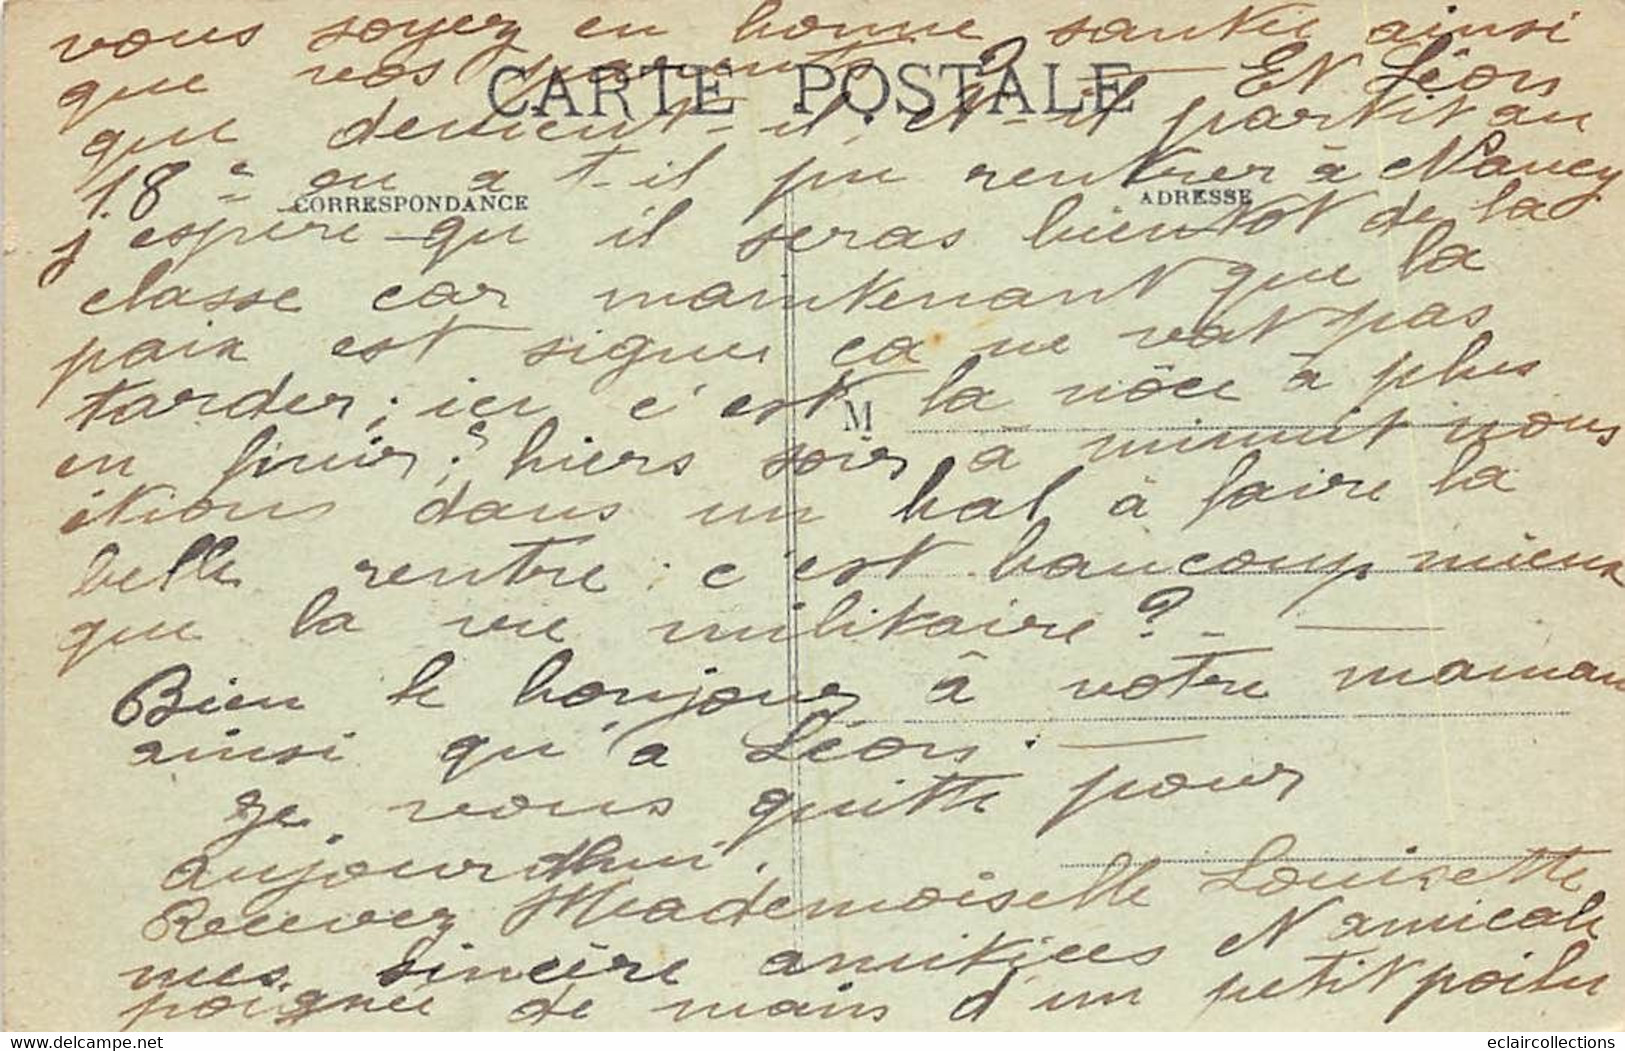 vous soyez en bonne santée ainsi
que vos parents ? — Et Léon
CARTE POSTALE
que devient-il, est-il partit au
18e ou a t-il pu rentrer à Nancy
CORRESPONDANCE
ADRESSE
j'espère qu'il seras bientôt de la
classe car maintenant que la
paix est signée ça ne vat pas
tarder ; ici c'est la nôce à plus
M
en finir ; hiers soir à minuit nous
étions dans un bal à faire la
belle rentre ; c'est baucoup mieux
que la vie militaire ? —
Bien le bonjour à votre maman
ainsi qu'à Léon. —
Je vous quitte pour
aujourdhui.
Recevez Mademoiselle Louisette
mes sincère amitiées et l'amicale
poignée de main d'un petit poilu
eclaircollections.com